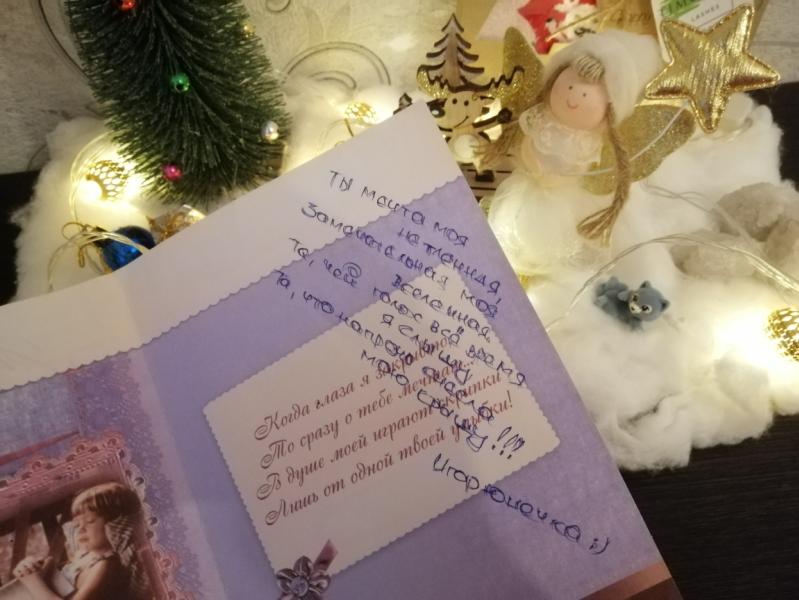 LASHES
Ты мечта моя
нетленная,
Замечательная моя
вселенная.
Та, чей голос всё время
я слышу
Та, что напрочь снесла
мою крышу!!!
Игорюнечка :)
Когда глаза я закрываю,
То сразу о тебе мечтаю...
В душе моей играют скрипки
Лишь от одной твоей улыбки!